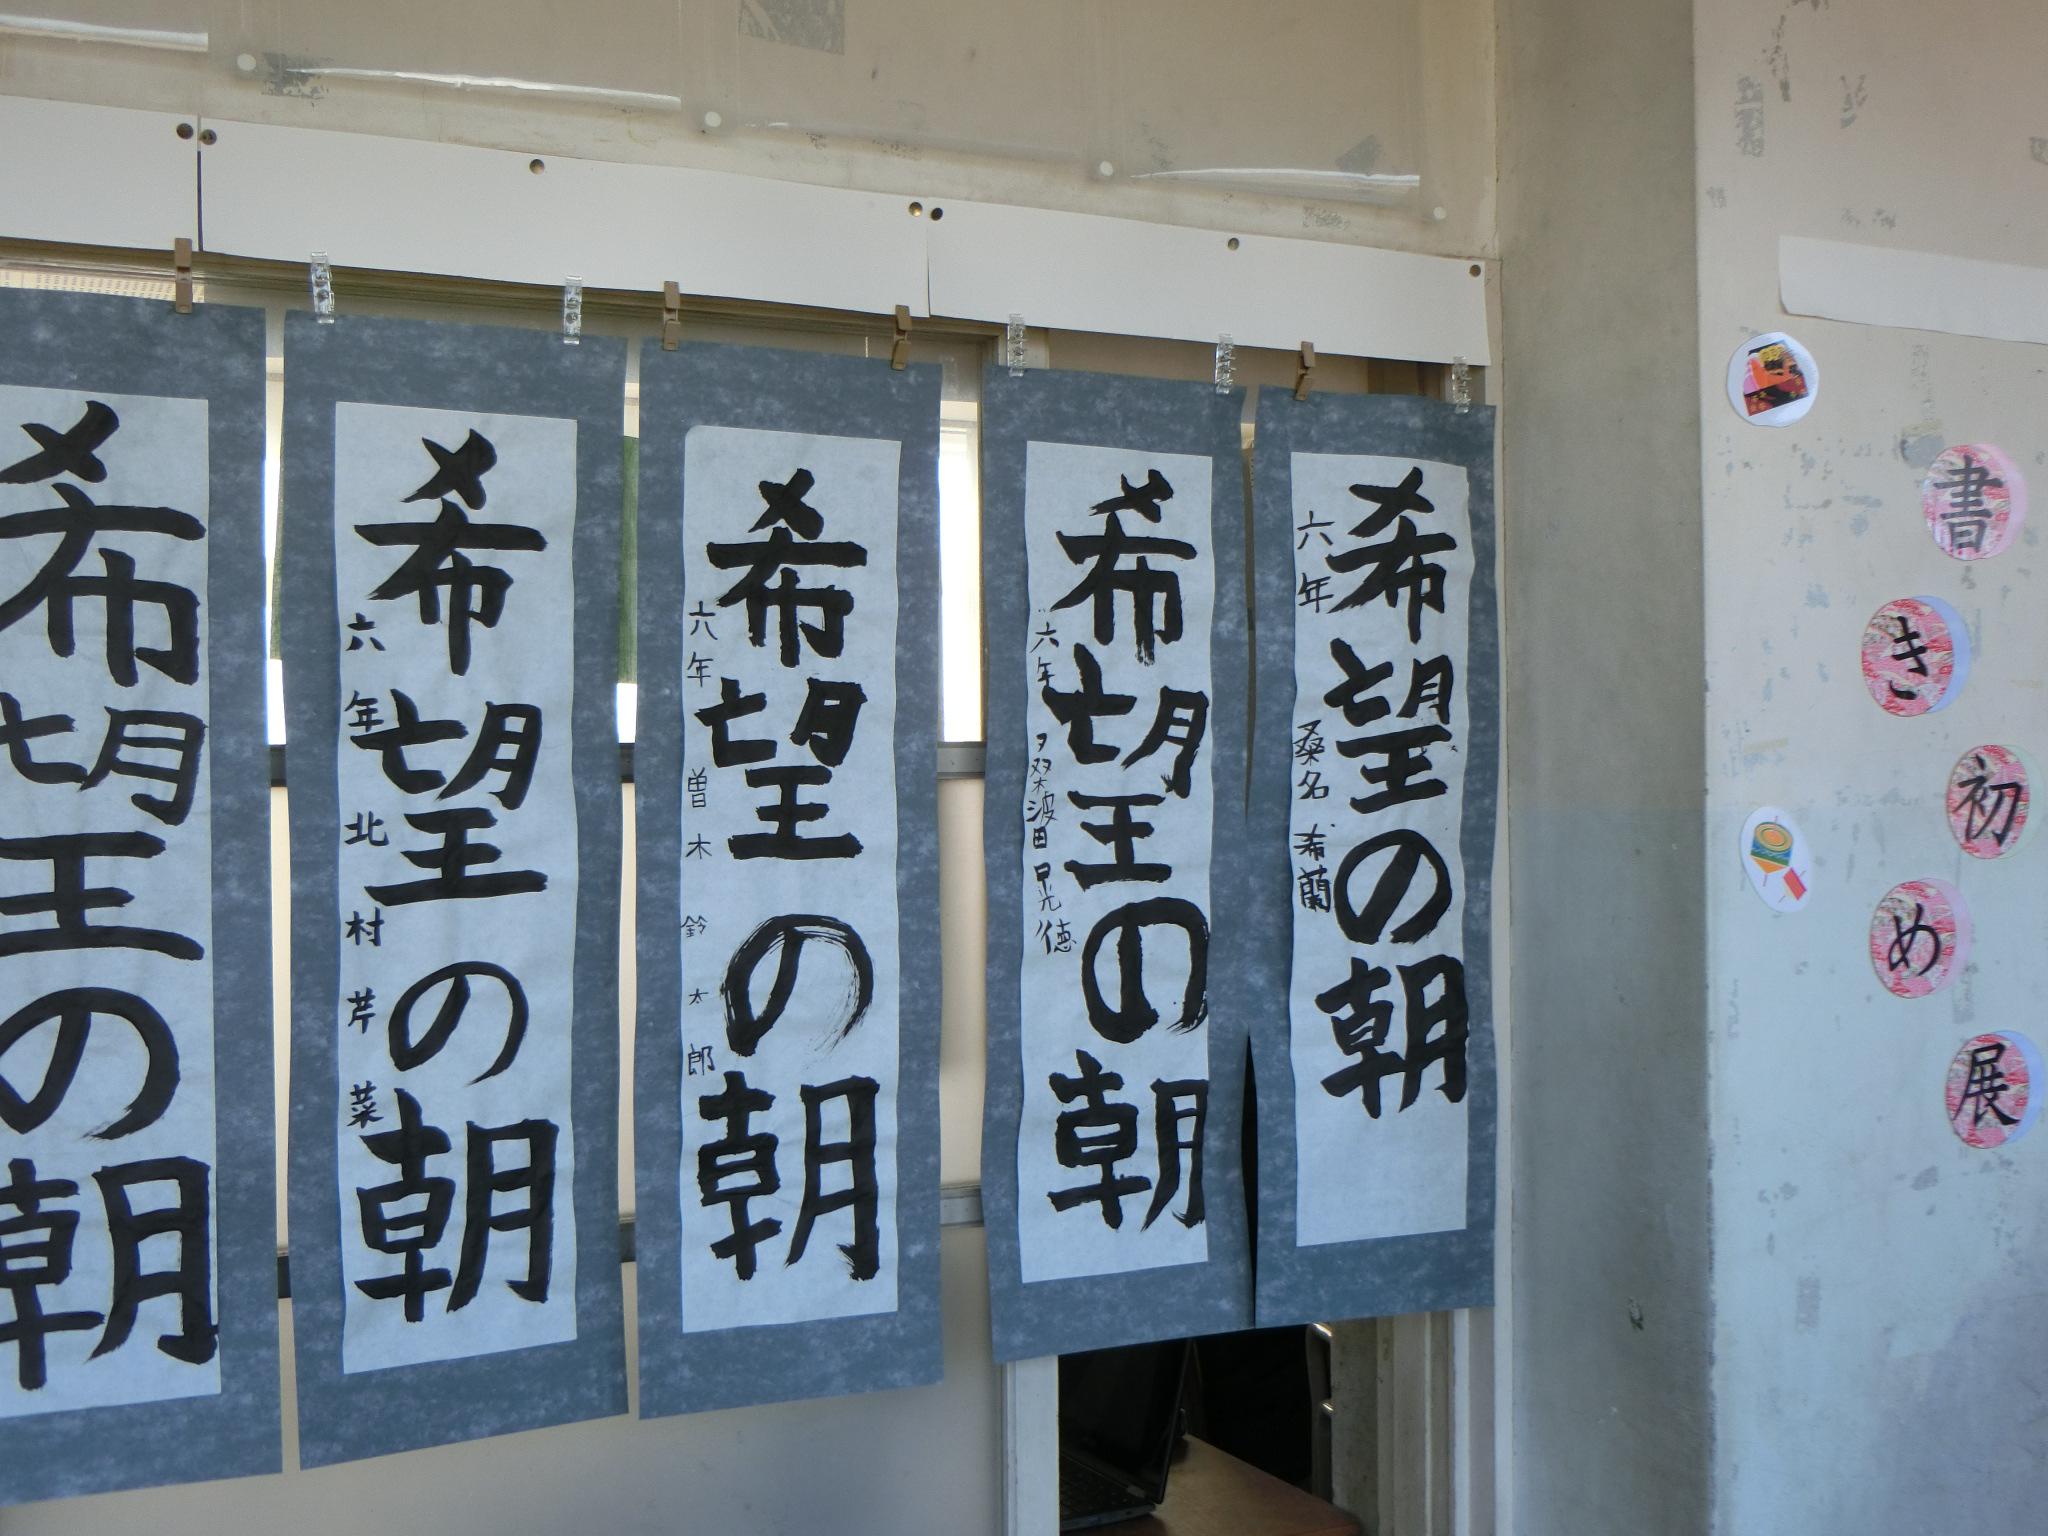 書き初め展
希望の朝
六年 桑名 希蘭
希望の朝
六年 桑波田 晃徳
希望の朝
六年 曽木 鈴太郎
希望の朝
六年 北村 芹菜
希望の朝